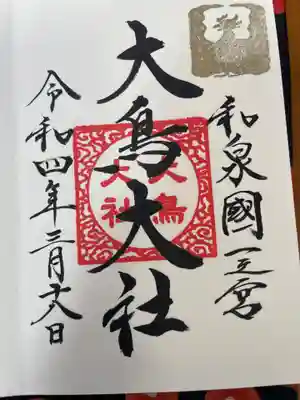 和泉國一之宮
大鳥大社
大鳥大社
令和四年三月十六日